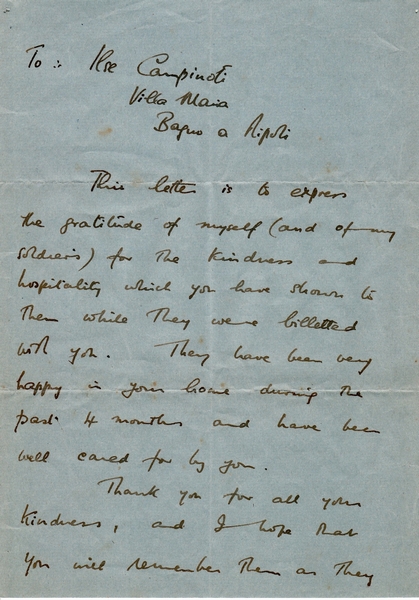 To :- Ilse Campinoti
Villa Maria
Bagno a Ripoli
This letter is to express
the gratitude of myself (and of my
soldiers) for the kindness and
hospitality which you have shown to
them while they were billetted
with you. They have been very
happy in your home during the
past 4 months and have been
well cared for by you.
Thank you for all your
kindness, and I hope that
you will remember them as they